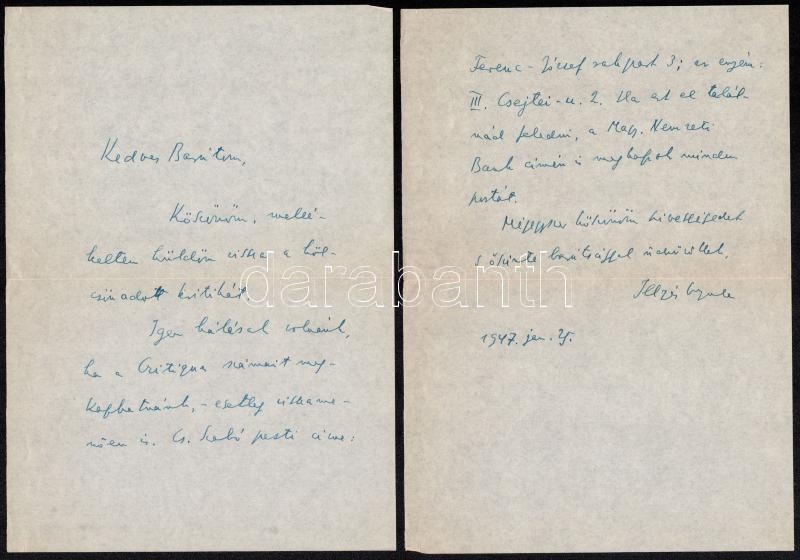 Kedves Barátom,
Köszönöm, mellé-
kelten küldöm vissza a köl-
csönadott kritikát.
Igen hálásak volnánk,
ha a Critique számait meg-
kaphatnánk, - esetleg visszame-
nően is. Cs. Szabó pesti címe:
Ferenc-József rakpart 3; az enyém:
III. Csejtei-u. 2. Ha azt el talál-
nád feledni, a Magy. Nemzeti
Bank címén is megkapok minden
postát.
Mégegyszer köszönöm kivességedet
s őszinte barátsággal üdvözöllek,
Illyés Gyula
1947. jan. 25.
darabanth